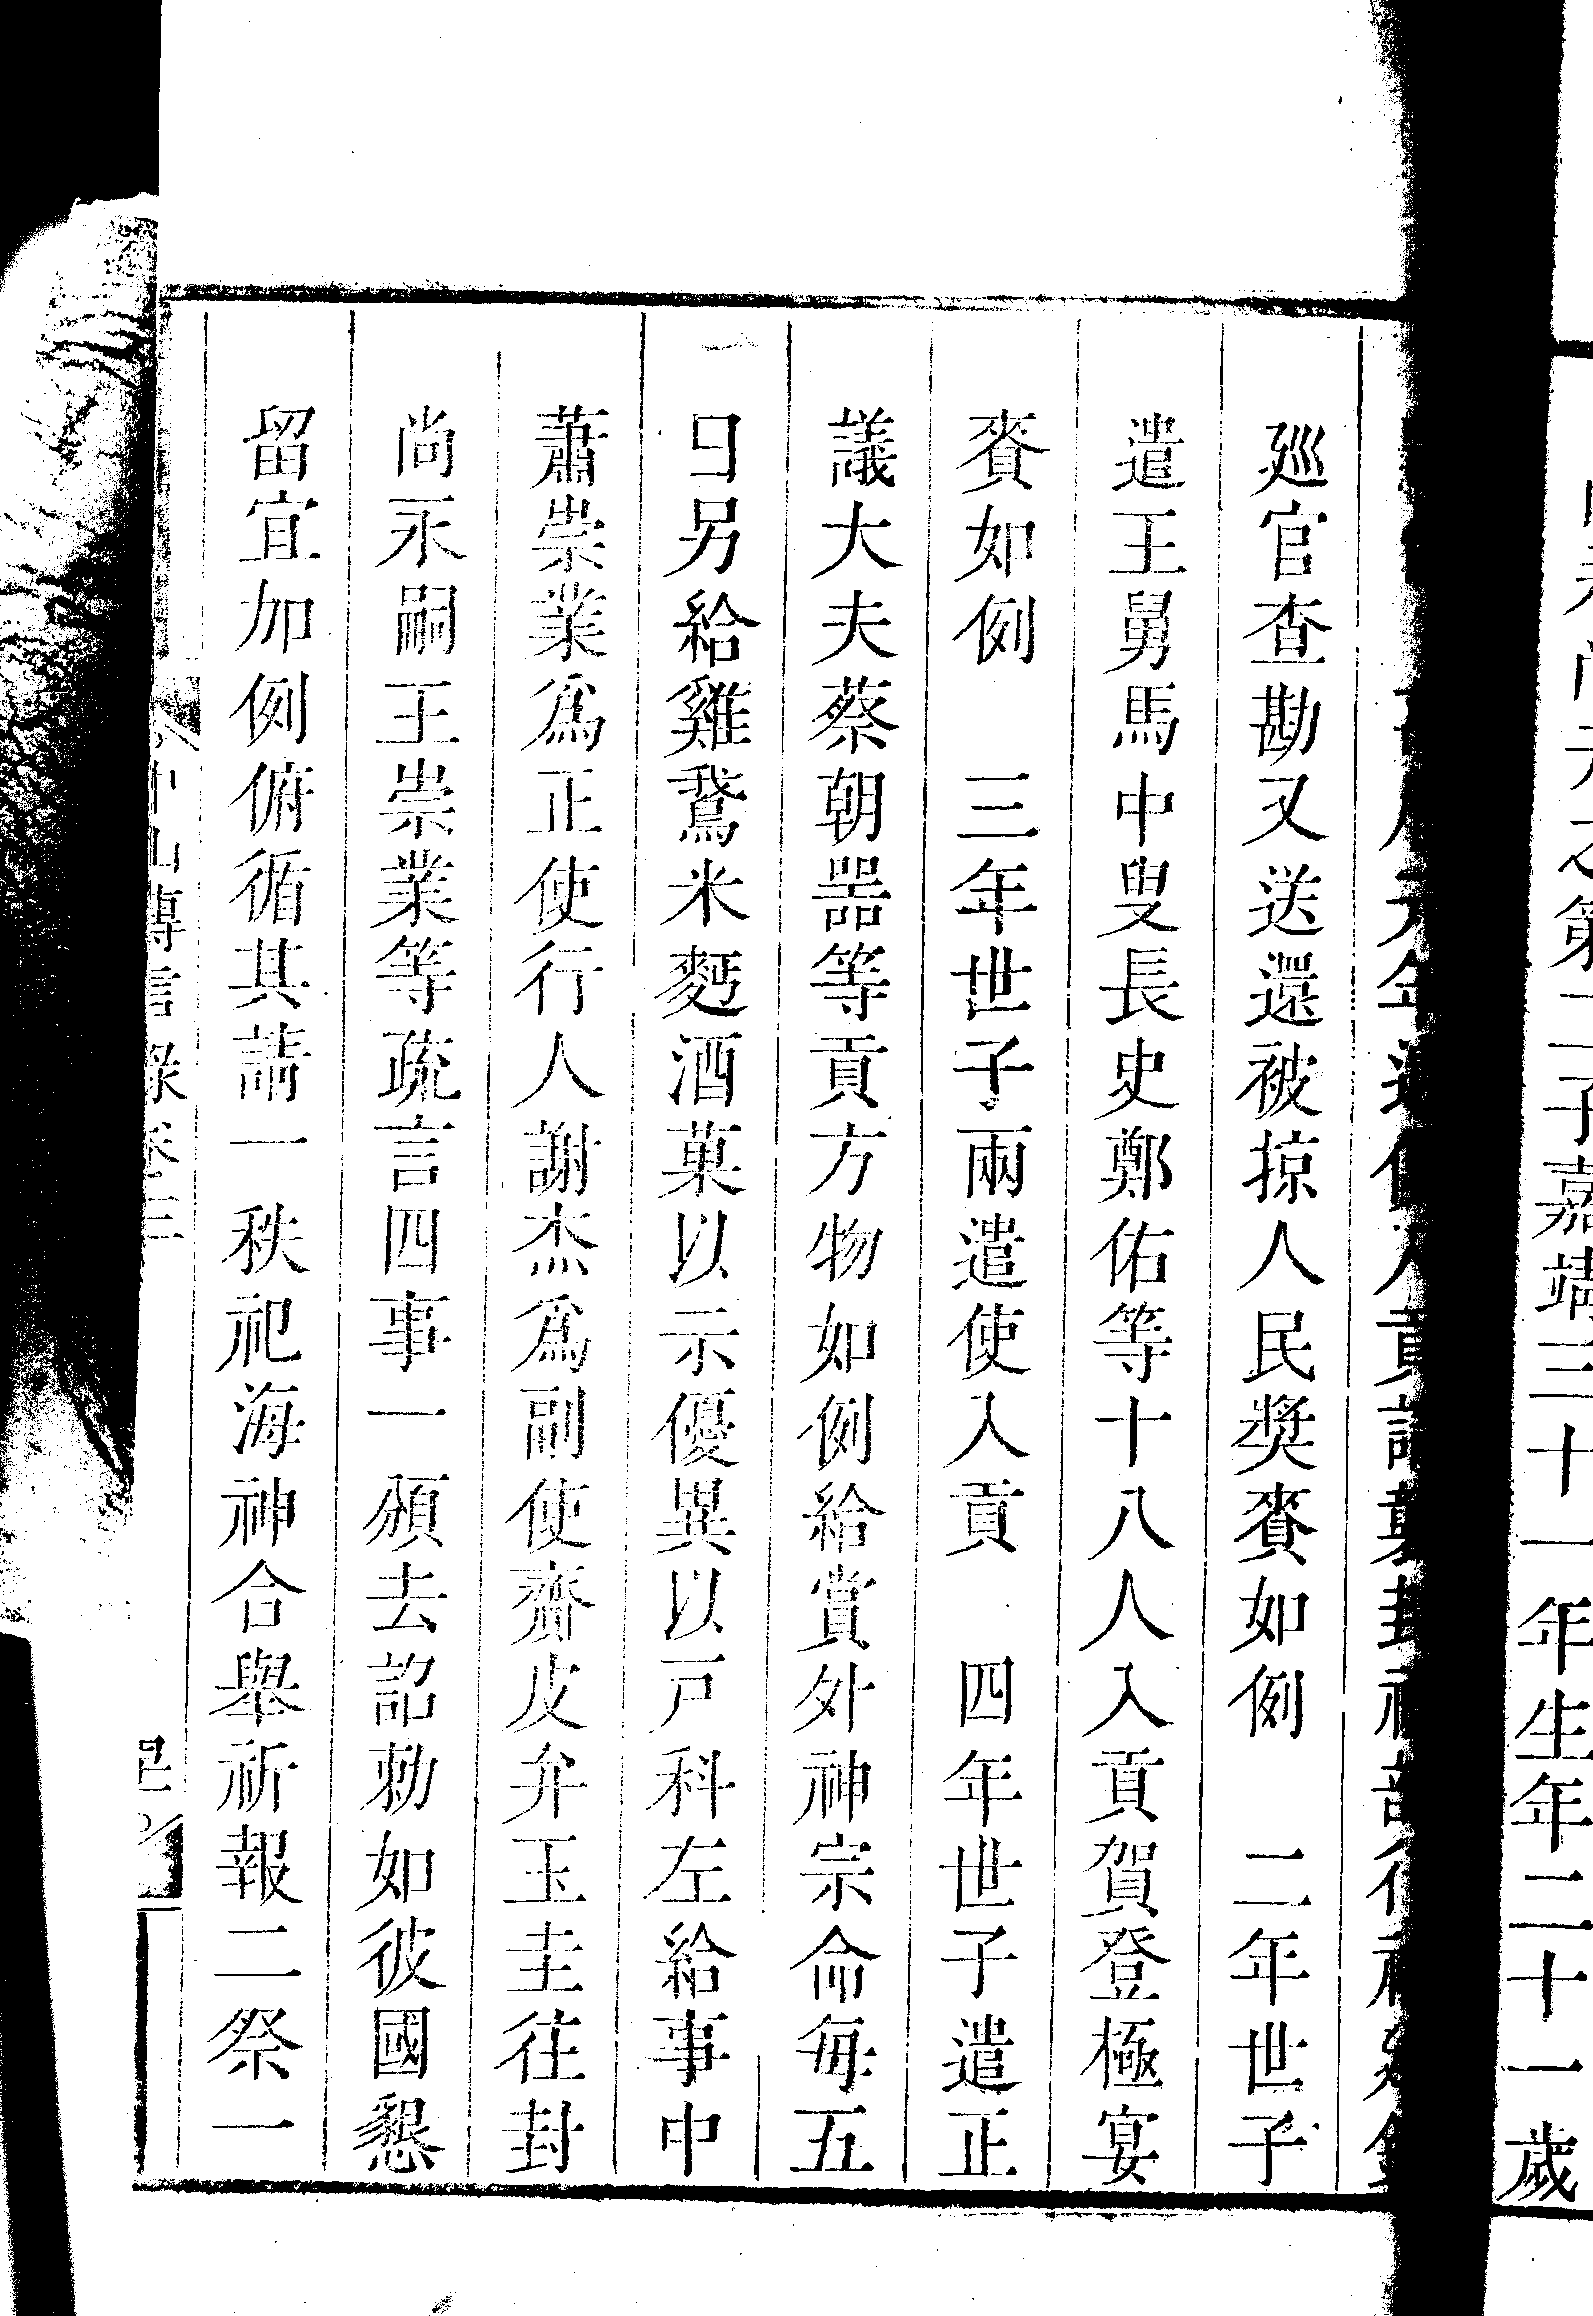 子嘉靖三十一年生年二十一歲
元年遣使入貢請襲封禮部行
廵官查勘又送還被掠人民奬賚如例　二年世子
遣王舅馬中叟長史鄭佑等十八人入貢賀登極宴
賚如例　三年世子兩遣使入貢　四年世子遣正
議大夫蔡朝噐等貢方物如例給賞外神宗命每五
日另給雞鵞米麪酒菓以示優異以戸科左給事中
蕭崇業爲正使行人謝杰爲副使齎皮弁玉圭往封
尚永嗣王崇業等疏言四事一頒去詔勅如彼國懇
留宜加例俯循其請一秩祀海神合舉祈報二祭一
中山傳信錄卷三